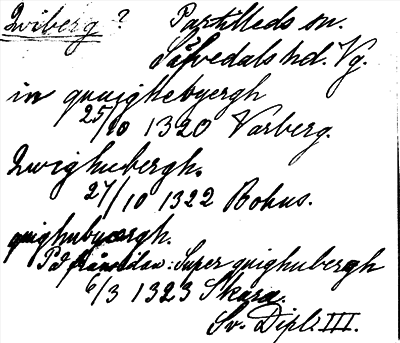 Qviberg? Partilleds sn.
Säfvedals hd. Vg.
in quuighebyergh
25/10 1320 Varberg.
Qwighubergh.
27/10 1322 Bohus.
quighubyærgh.
På frånsidan: Super quighubergh
6/3 1323 Skara.
Sv. Dipl. III.